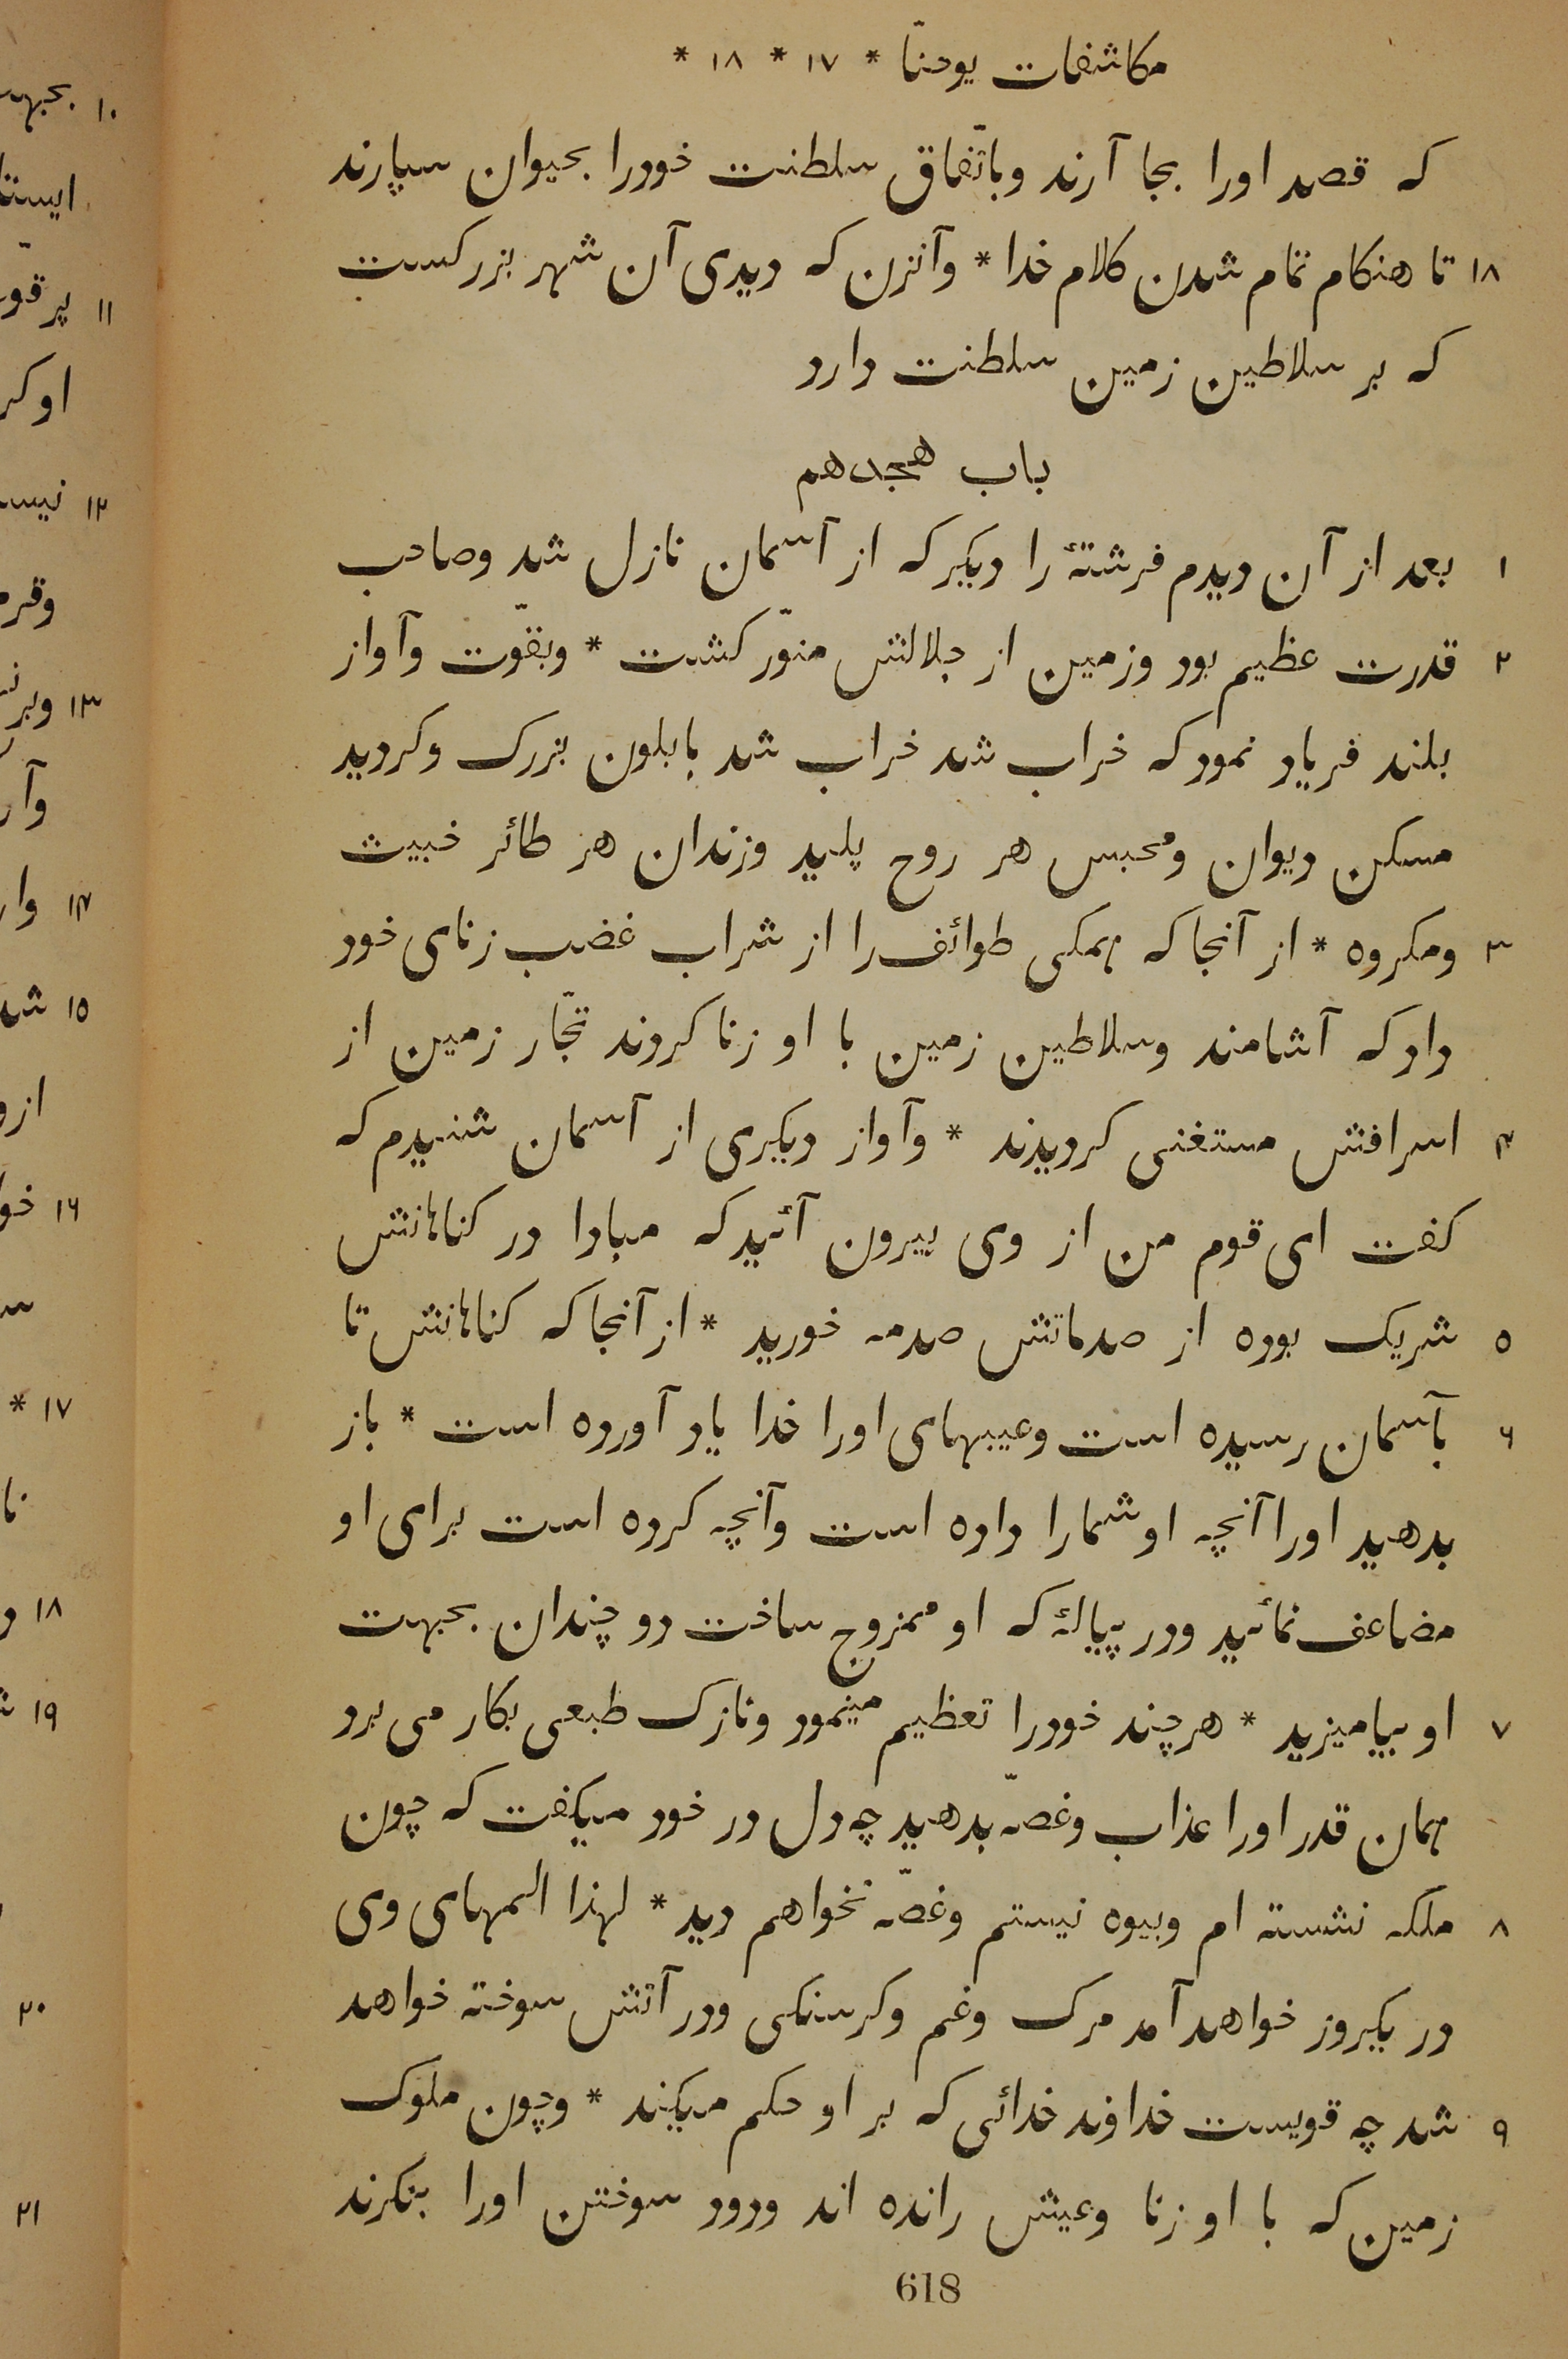 مکاشفات یوحنّا * ۱۷ * ۱۸ *
که قصد اورا بجا آرند وباتّفاق سلطنت خودرا بحیوان سپارند
۱۸ تا هنکام تمام شدن کلام خدا * وآنزن که دیدی آن شهر بزرکست
که بر سلاطین زمین سلطنت دارد
باب هجدهم
۱ بعد از آن دیدم فرشتهٔ را دیکر که از آسمان نازل شد وصاحب
۲ قدرت عظیم بود وزمین از جلالش منوّر کشت * وبقوّت وآواز
بلند فریاد نمود که خراب شد خراب شد بابلون بزرک وکردید
مسکن دیوان ومحبس هر روح پلید وزندان هر طائر خبیث
۳ ومکروه * از آنجا که همکی طوائف را از شراب غضب زنای خود
داد که آشامند وسلاطین زمین با او زنا کردند تجّار زمین از
۴ اسرافش مستغنی کردیدند * وآواز دیکری از آسمان شنیدم که
کفت ای قوم من از وی بیرون آئید که مبادا در کناهانش
۵ شریک بوده از صدماتش صدمه خورید * از آنجا که کناهانش تا
۶ بآسمان رسیده است وعیبهای اورا خدا یاد آورده است * باز
بدهید اورا آنچه او شمارا داده است وآنچه کرده است برای او
مضاعف نمائید ودر پیالهٔ که او ممزوج ساخت دو چندان بجهت
۷ او بیامیزید * هر چند خودرا تعظیم مینمود ونازک طبعی بکار می برد
همان قدر اورا عذاب وغصّه بدهید چه دل در خود میکفت که چون
۸ ملکه نشسته ام وبیوه نیستم وغصّه نخواهم دید * لهذا المهای وی
در یکروز خواهد آمد مرک وغم وکرسنکی ودر آتش سوخته خواهد
۹ شد چه قویست خداوند خدائی که بر او حکم میکند * وچون ملوک
زمین که با او زنا وعیش رانده اند ودود سوختن اورا بنکرند
618
۱۰ بجهت
۱۱ پر
او
۱۲
۱۳
۱۴
۱۵
۱۶
۱۷ *
۱۸
۱۹
۲۰
۲۱